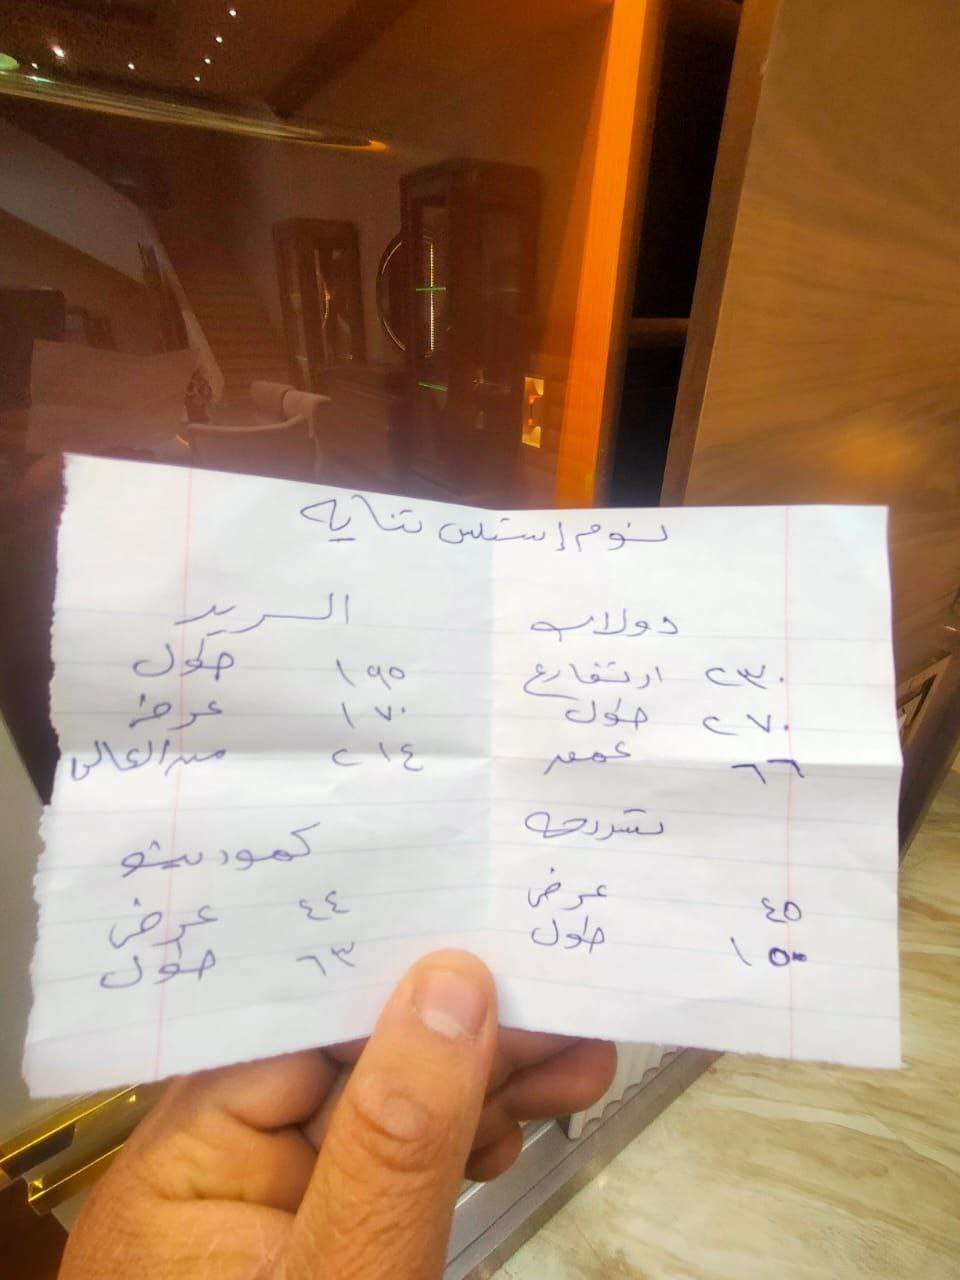 نوم إستلس تنايه
دولاب
ارتفاع ٢٣٠
طول ٢٧٠
عمق ٦٦
تسريحه
عرض ٤٥
طول ١٥٠
السرير
طول ١٩٥
عرض ١٧٠
من العالى ٢١٤
كمودينو
عرض ٤٤
طول ٦٣